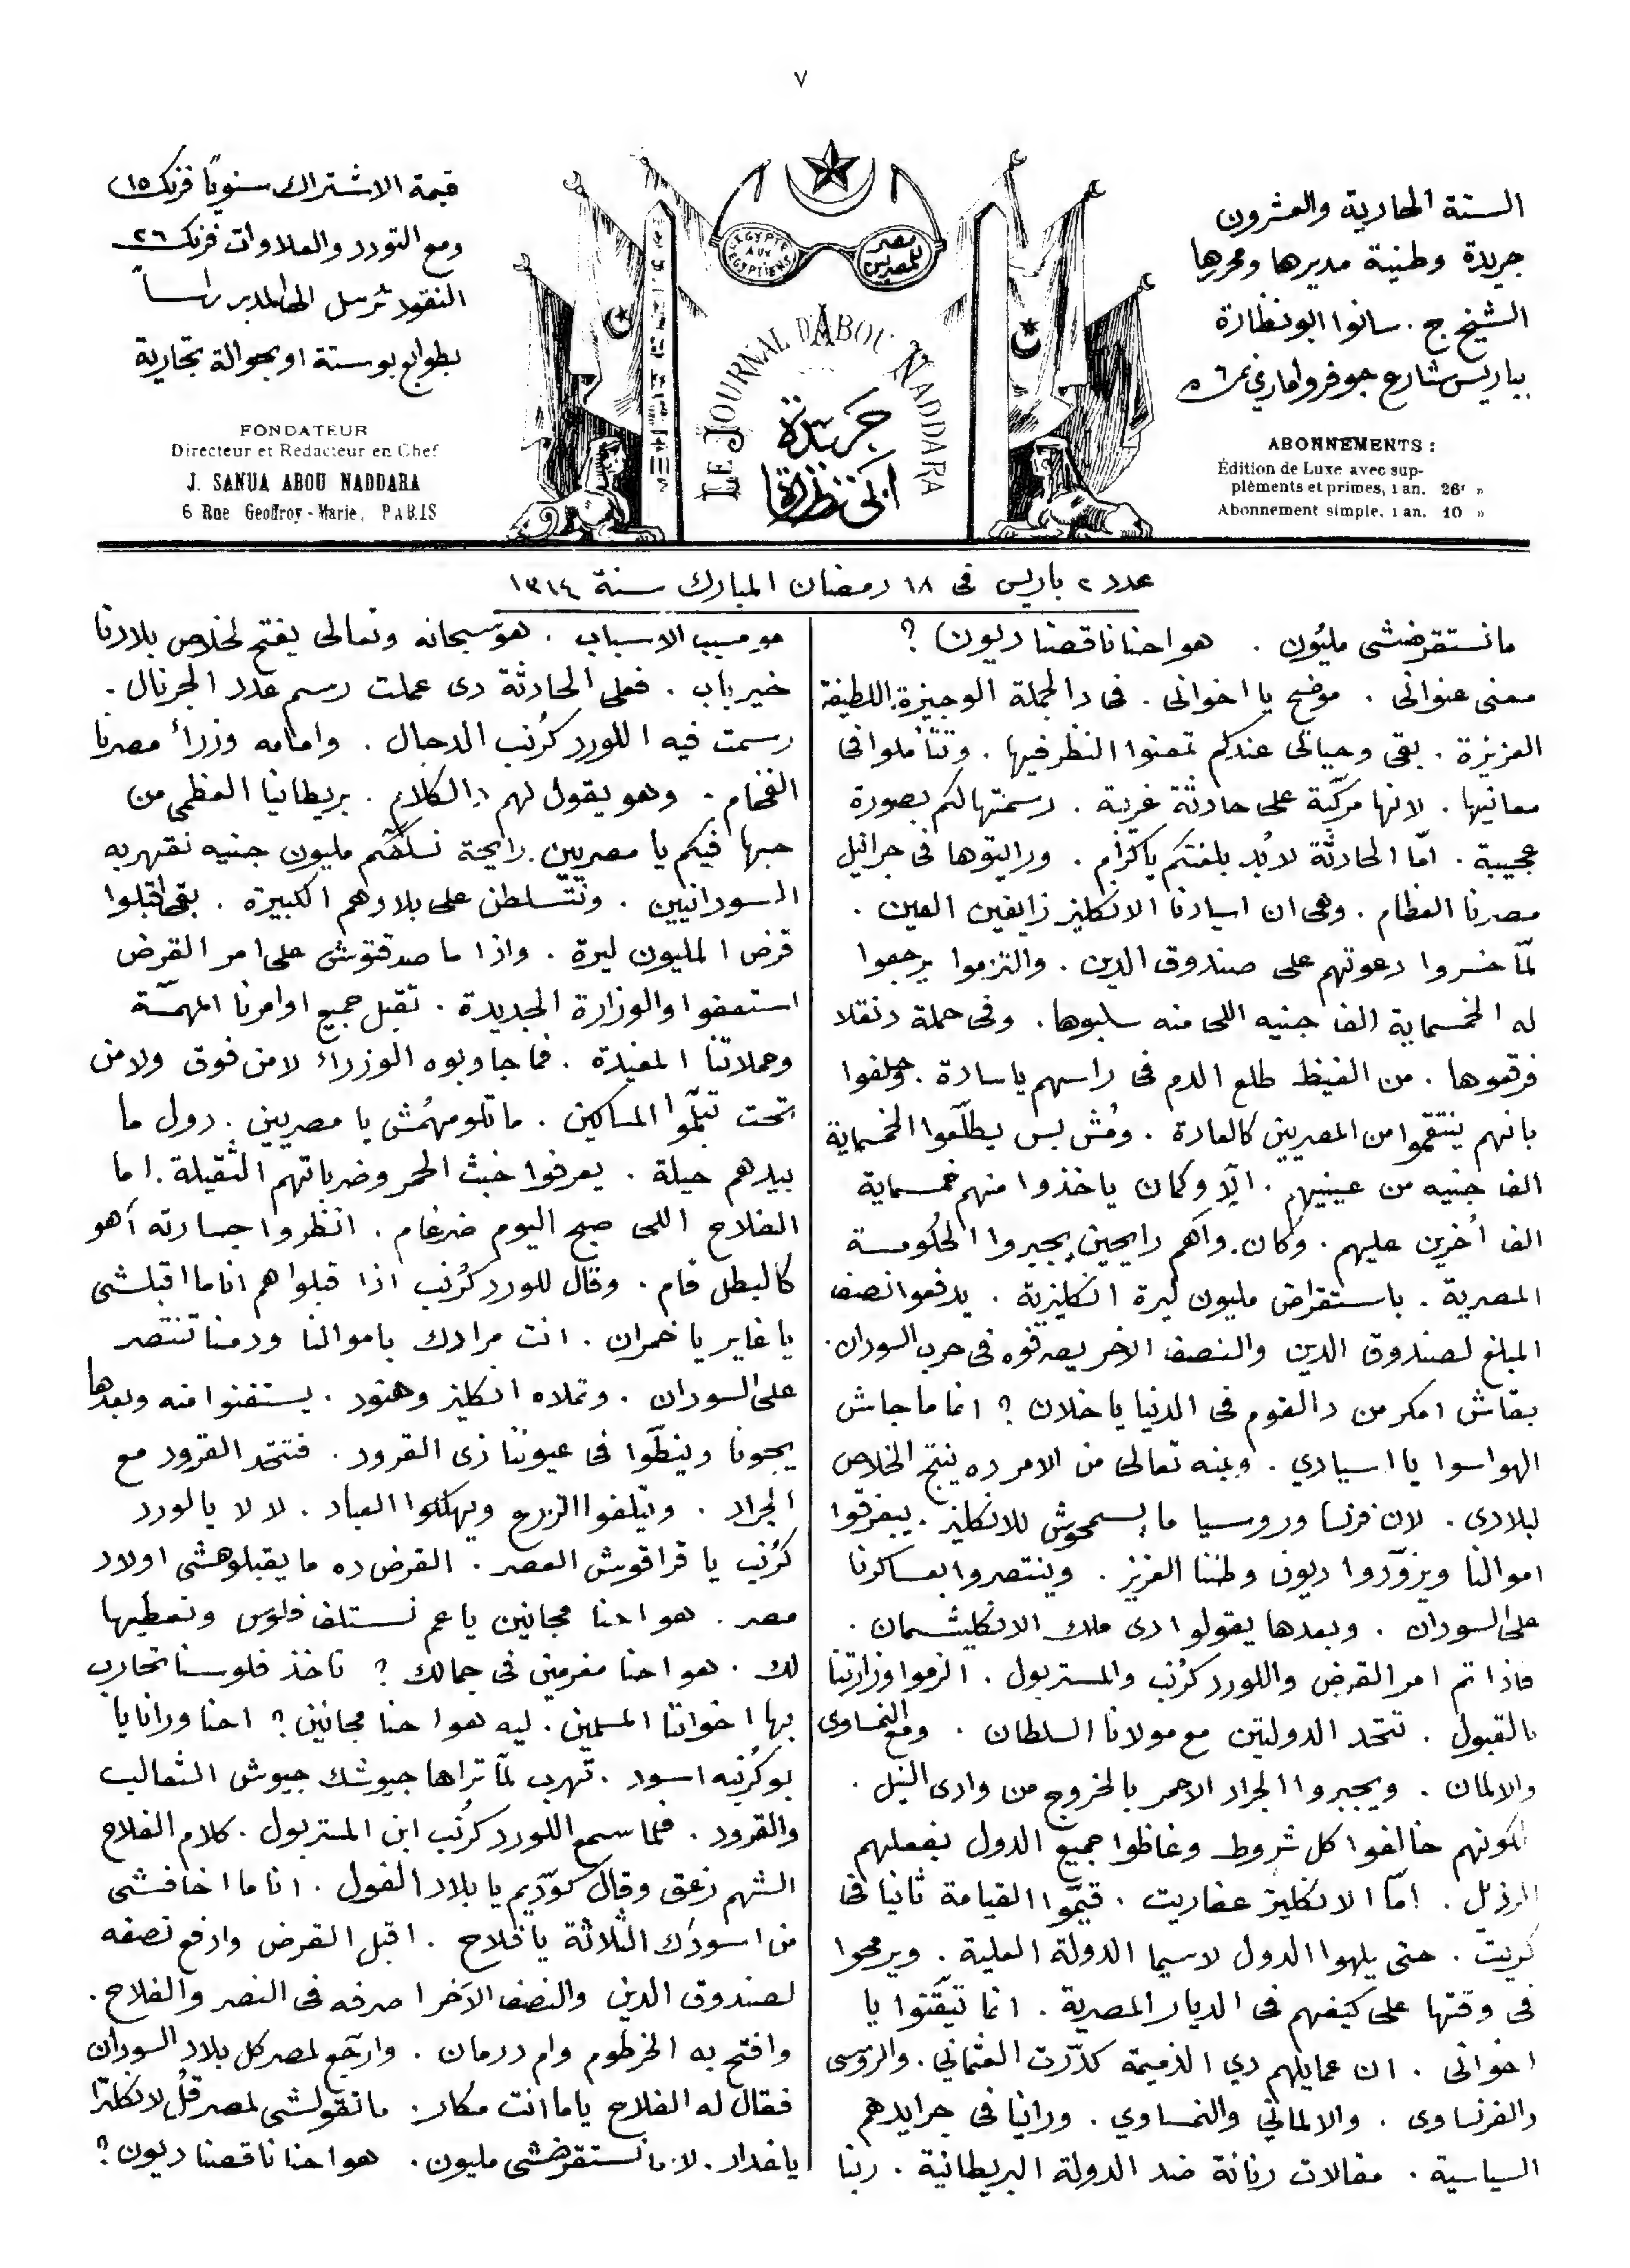 ٧
السنة الحادية والعشرون
جريدة وطنية مديرها ومحررها
الشيخ ج. سانوا ابو نظارة
بباريس شارع جوفروا ماري نمر ٦
ABONNEMENTS :
Édition de Luxe avec sup-
pléments et primes, 1 an. 26f »
Abonnement simple, 1 an. 10 »
L'EGYPTE AUX EGYPTIENS
مصر للمصريين
LE JOURNAL D'ABOU NADDARA
جريدة
ابى نظارة
قيمة الاشتراك سنويًا فرنك ١٥
ومع التورد والعلاوات فرنك ٢٦
النقود ترسل الى المدير راساً
بطوابع بوستة او بحوالة تجارية
FONDATEUR
Directeur et Redacteur en Chef
J. SANUA ABOU NADDARA
6 Rue Geoffroy-Marie, PARIS
عدد ٢ باريس فى ١٨ رمضان المبارك سنة ١٣١٤
ما نستقرضشى مليُون . هو احنا ناقصنا ديون ؟
معنى عنوانى . موضح يا اخوانى . فى دا الجملة الوجيزة اللطيفة
العزيزة . بقى وحياتى عندكم تمعنوا النظر فيها . وتتأملوا فى
معانيها . لانها مركّبة على حادثة غريبة . رسمتها لكم بصورة
عجيبة . امّا الحادثة لابُد بلغتكم ياكرام . ورايتوها فى جرانيل
مصرنا العظام . وهى ان اسيادنا الانكليز زايغين العين .
لمّا خسروا دعوتهم على صندوق الدين . والتزموا يرجعوا
له الخمسماية الف جنيه اللى منه سلبوها . وفى حملة دنقلا
فرقعوها . من الغيظ طلع الدم فى راسهم ياسادة . وحلفوا
بانهم ينتقموا من المصريين كالعادة . ومُش بس يطلّعوا الخمسماية
الف جنيه من عينيهم . الّا وكمان ياخذوا منهم خمسماية
الف اُخرين عليهم . وكان . واهُم رايحين يجبروا الحكومة
المصرية . باستقراض مليون ليرة انكليزية . يدفعوا نصف
المبلغ لصندوق الدين والنصف الاخر يصرفوه فى حرب السودان .
بقاش امكر من دا القوم فى الدنيا يا خلان ؟ انما ما جاش
الهوا سوا يا اسيادي . وبمنه تعالى من الامر ده ينتج الخلاص
لبلادى . لان فرنسا وروسيا ما يسمحوش للانكليز . يبعزقوا
اموالنا ويزوّدوا ديون وطننا العزيز . وينتصروا بعساكرنا
على السودان . وبعدها يقولوا دى ملك الانكليشمان .
فاذا تم امر القرض واللورد كرُنب والمستربول . الزموا وزارتنا
بالقبول . تتحد الدولتين مع مولانا السلطان . ومع النمساوى
والالمان . ويجبروا الجراد الاحمر بالخروج من وادى النيل .
لكونهم خالفوا كل شروط وغاظوا جميع الدول بفعلهم
الرذيل . امّا الانكليز عفاريت . قيّموا القيامة ثانيا فى
كريت . حتى يلهوا الدول لاسيما الدولة العلية . ويرمحوا
فى وقتها على كيفهم فى الديار المصرية . انما تيقّنوا يا
اخوانى . ان عمايلهم دي الذميمة كدّرت العثمانى . والروسى
والفرنساوى . والالمانى والنمساوي . وراينا فى جرايدهم
السياسية . مقالات رنانة ضد الدولة البريطانية . ربنا
هو مسبب الاسباب . هو سبحانه وتعالى يفتح لخلاص بلادنا
خير باب . فعلى الحادثة دى عملت رسم عدد الجرنال .
رسمت فيه اللورد كرُنب الدجال . وامامه وزراء مصرنا
الفخام . وهو يقول لهم دا الكلام . بريطانيا العظمى من
حبها فيكم يا مصريين . رايحة نسلفكم مليون جنيه نقهر به
السودانيين . ونتسلطن على بلادهم الكبيرة . بقى اقبلوا
قرض المليون ليرة . واذا ما صدقتوش على امر القرض
استعفوا والوزارة الجديدة . تقبل جميع اوامرنا المهمّة
وحملاتنا المفيدة . فما جاوبوه الوزراء لا من فوق ولا من
تحت تبلّموا المساكين . ما تلوموهُمش يا مصريين . دول ما
بيدهم حيلة . يعرفوا خبث الحمر وضرباتهم الثقيلة . اما
الفلاح اللى صبح اليوم ضرغام . انظروا جسارته اهو
كالبطل قام . وقال للورد كرُنب اذا قبلوا هم انا ما اقبلشى
يا غاير يا خمران . انت مرادك باموالنا ودمنا تنتصر
على السودان . وتملاه انكليز وهنود . يستغنوا منه وبعدها
يجونا وينطّوا فى عيوننا زى القرود . فتتحد القرود مع
الجراد . ويتلفوا الزرع ويهلكوا العباد . لا لا يا لورد
كرُنب يا قراقوش العصر . القرض ده ما يقبلوهشى اولاد
مصر . هو احنا مجانين يا عم نستلف فلوس ونعطيها
لك . هو احنا مغرمين فى جمالك ؟ تاخذ فلوسنا تحارب
بها اخواتنا المسلمين . ليه هو احنا مجانين ؟ احنا ورانا يا
بو كرُنبه اسود . تهرب لمّا تراها جيوشك جيوش الثعالب
والقرود . فلما سمع اللورد كرُنب ابن المستربول . كلام الفلاح
الشهم زعق وقال كودّيم يا بلاد الفول . انا ما اخافشى
من اسودك الثلاثة يا فلاح . اقبل القرض وادفع نصفه
لصندوق الدين والنصف الاخر اصرفه فى النصر والفلاح .
وافتح به الخرطوم وام درمان . وارجّع لمصر كل بلاد السودان
فقال له الفلاح ياما انت مكار . ما تقولشى لمصر قُل لانكلترا
يا غدار . لا ما نستقرضشى مليون . هو احنا ناقصنا ديون ؟